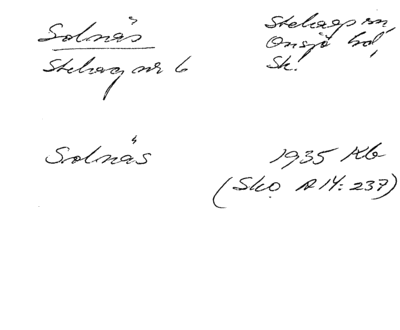 Solnäs
Stehag nr 6
Stehags sn,
Onsjö hd,
Sk.
Solnäs
1935 Kb
(Sko A 14: 237)